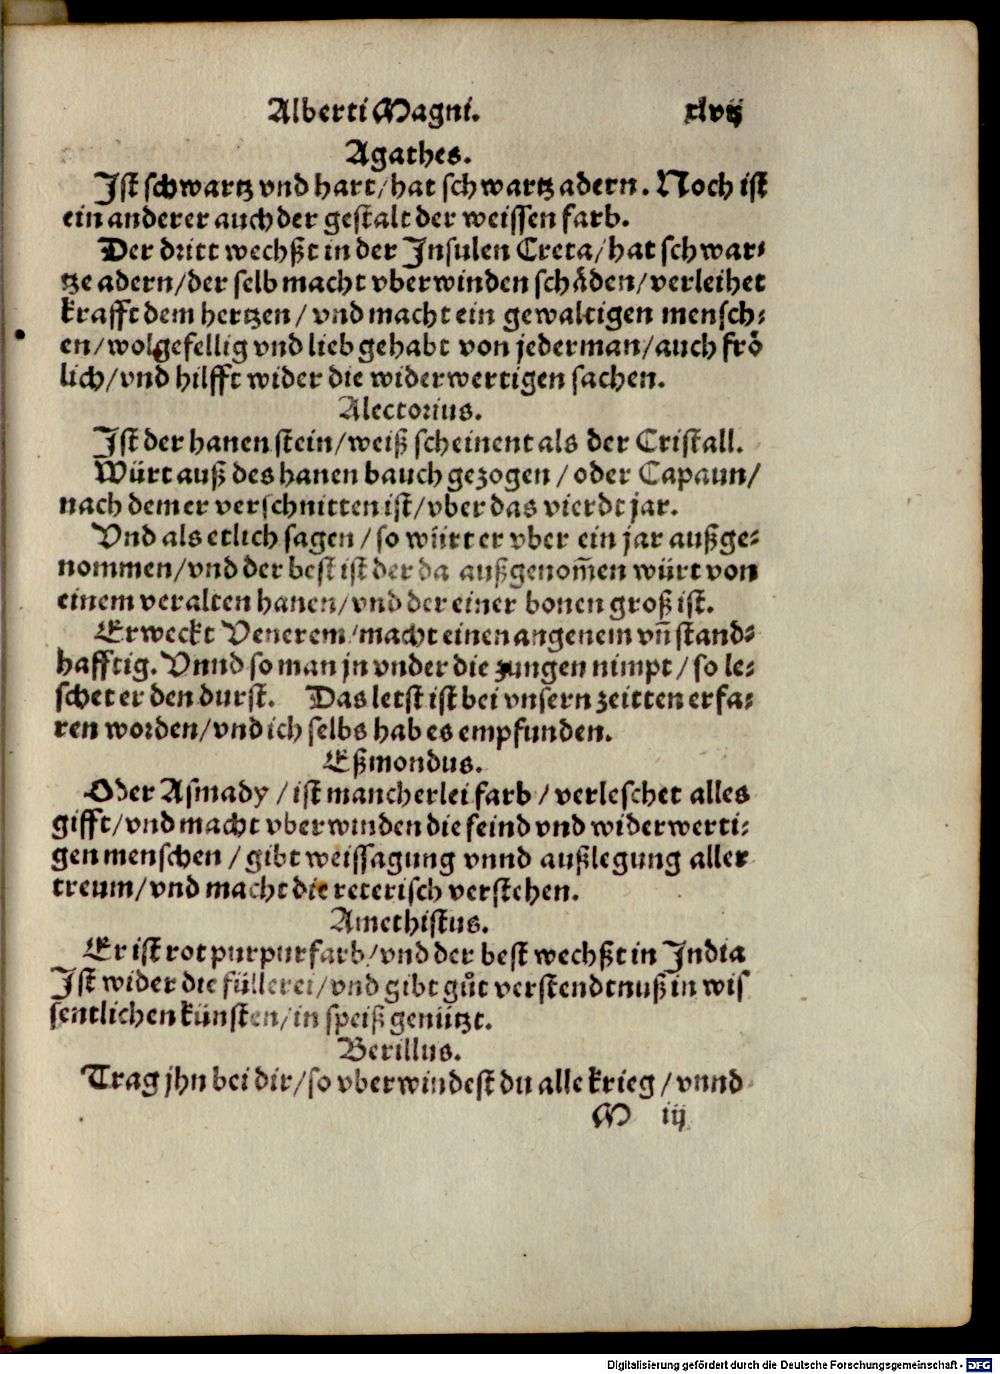 Alberti Magni. xlvij
Agathes.
Ist schwartz vnd hart/hat schwartz adern. Noch ist
ein anderer auch der gestalt der weissen farb.
Der dritt wechßt in der Insulen Creta/hat schwar⸗
tze adern/der selb macht vberwinden schåden/verleihet
krafft dem hertzen/ vnd macht ein gewaltigen mensch⸗
en/wolgefellig vnd lieb gehabt von jederman/auch frö
lich/vnd hilfft wider die widerwertigen sachen.
Alectorius.
Ist der hanen stein/weiß scheinent als der Cristall.
Würt auß des hanen bauch gezogen/ oder Capaun/
nach dem er verschnitten ist/vber das vierdt jar.
Vnd als etlich sagen/ so würt er vber ein jar außge⸗
nommen/vnd der best ist der da außgenom̄en würt von
einem veralten hanen/vnd der einer bonen groß ist.
Erweckt Venerem/macht einen angenem vn̄ stand⸗
hafftig. Vnnd so man jn vnder die zungen nimpt/ so le⸗
schet er den durst. Das letst ist bei vnsern zeitten erfa⸗
ren worden/vnd ich selbs hab es empfunden.
Eßmondus.
Oder Asmady/ ist mancherlei farb/ verleschet alles
gifft/vnd macht vberwinden die feind vnd widerwerti⸗
gen menschen/ gibt weissagung vnnd außlegung aller
treum/vnd macht die reterisch verstehen.
Amethistus.
Er ist rot purpurfarb/vnd der best wechßt in India
Ist wider die füllerei/vnd gibt gůt verstendtnuß in wis
sentlichen künsten/in speiß genützt.
Berillus.
Trag jhn bei dir/so vberwindest du alle krieg/ vnnd
M iij
Digitalisierung gefördert durch die Deutsche Forschungsgemeinschaft - DFG